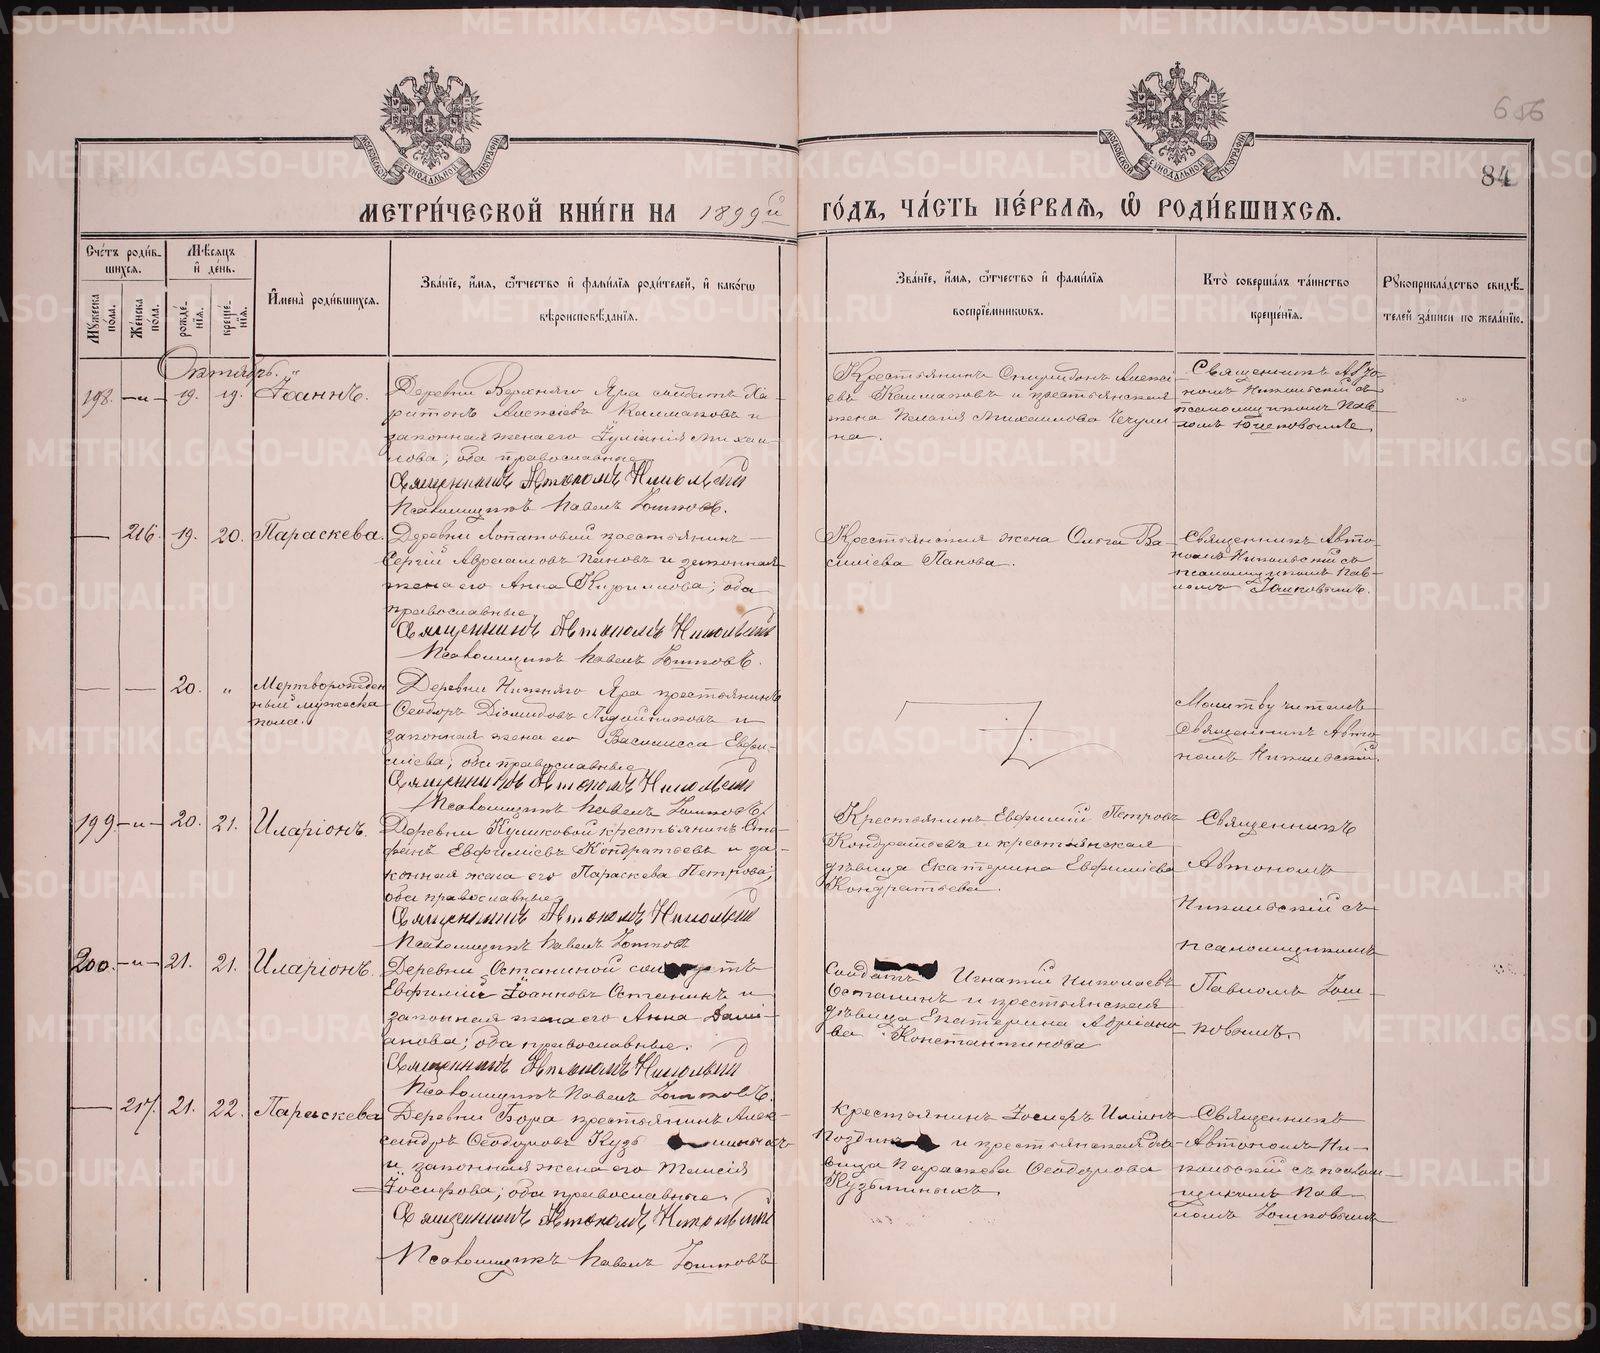 656
84
МЕТРИ́ЧЕСКОЙ КНИ́ГИ НА 1899й ГО́ДЪ, ЧА́СТЬ ПЕ́РВАЯ, Ѡ РОДИ́ВШИХСЯ.
Сче́тъ роди́в-
шихся.
Мꙋжеска по́ла.
Же́нска по́ла.
Мѣ́сяцъ
и҆ де́нь.
рожде́-нїя.
креще́-нїя.
И҆мена̀ роди́вшихся.
Зва́нїе, и҆́мя, ѻ҆́тчество и҆ фами́лїя роди́телей, и҆ како́гѡ
вѣроисповѣ́данїя.
Зва́нїе, и҆́мя, ѻ҆́тчество и҆ фами́лїя
воспрїе́мникѡвъ.
Кто̀ соверша́лъ та́инство
креще́нїя.
Рꙋкоприкла́дство свидѣ́-
телей за́писи по жела́нїю.
Октябрь.
198. —„— 19. 19. Іоаннъ.
Деревни Верхняго Яра солдатъ Ха-
ритонъ Алексѣевъ Колмаковъ и
законная жена его Іуліанія Михаи-
лова; оба православные.
Священникъ Автономъ Никольскій
Псаломщикъ Павелъ Юшковъ.
Крестьянинъ Спиридонъ Алексѣ-
евъ Колмаковъ и крестьянская
жена Пелагія Михаилова
на.
Священникъ Авто-
номъ Никольскій съ
псаломщикомъ Пав-
ломъ Юшковымъ.
— 216. 19. 20. Параскева.
Деревни крестьянинъ
Сергій Авраамовъ Пановъ и законная
жена его Анна Кириллова; оба
православные.
Священникъ Автономъ Никольскій
Псаломщикъ Павелъ Юшковъ.
Крестьянская жена Ольга Ва-
силіева Панова.
Священникъ Авто-
номъ Никольскій съ
псаломщикомъ Пав-
ломъ Юшковымъ.
— — 20. „ Мертворожден
ный мужеска
пола.
Деревни Нижняго Яра крестьянинъ
Ѳеодоръ Діомидовъ и
законная жена его Василисса Евѳи-
міева; оба православные.
Священникъ Автономъ Никольскій
Псаломщикъ Павелъ Юшковъ.
Молитву читалъ
Священникъ Авто-
номъ Никольскій.
199. —„— 20. 21. Иларіонъ.
Деревни Кушковой крестьянинъ Сте-
фанъ Евѳиміевъ Кондратьевъ и за-
конная жена его Параскева Петрова;
оба православные.
Священникъ Автономъ Никольскій
Псаломщикъ Павелъ Юшковъ
Крестьянинъ Евѳимій Петровъ
Кондратьевъ и крестьянская
дѣвица Екатерина Евѳиміева
Кондратьева.
Священникъ
Автономъ
Никольскій съ
псаломщикомъ
Павломъ Юш-
ковымъ.
200. —„— 21. 21. Иларіонъ.
Деревни Останиной солдатъ
Евѳимій Іоанновъ Останинъ и
законная жена его Анна Дамі-
анова; оба православные.
Священникъ Автономъ Никольскій
Псаломщикъ Павелъ Юшковъ.
Солдатъ Игнатій Николаевъ
Останинъ и крестьянская
дѣвица Екатерина Адріано-
ва Константинова
— 217. 21. 22. Параскева
Деревни Бора крестьянинъ Алек-
сандръ Ѳеодоровъ Кузьминыхъ
и законная жена его Таисія
Іосифова; оба православные.
Священникъ Автономъ Никольскій
Псаломщикъ Павелъ Юшковъ
Крестьянинъ Іосифъ Ильинъ
и крестьянская дѣ-
вица Параскева Ѳеодорова
Кузьминыхъ.
Священникъ
Автономъ Ни-
кольскій съ псалом-
щикомъ Пав-
ломъ Юшковымъ
METRIKI.GASO-URAL.RU